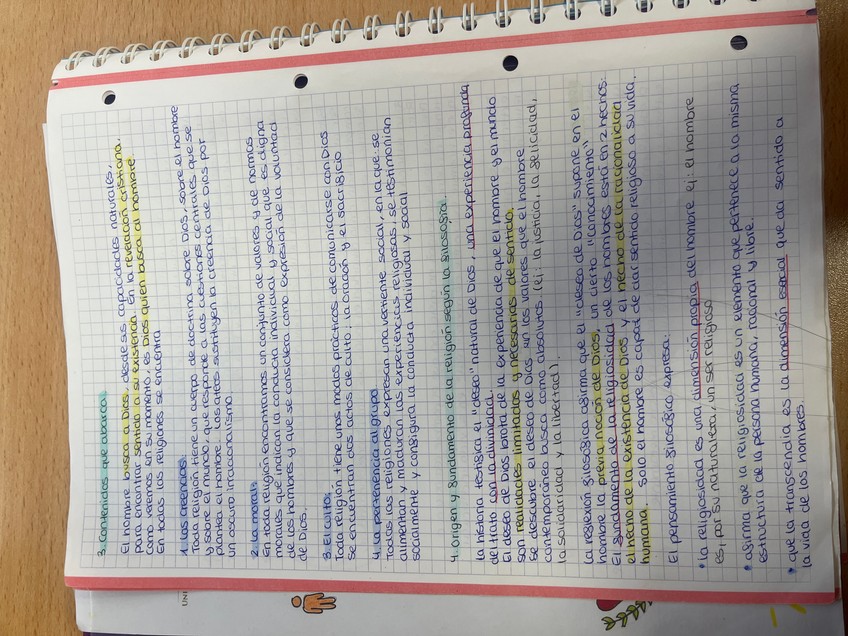 3. Contenidos que abarca:
El hombre busca a Dios, desde sus capacidades naturales,
para encontrar sentido a su existencia. En la revelación cristiana,
como veremos en su momento, es Dios quien busca al hombre.
En todas las religiones se encuentra
1. Las creencias
Toda religión tiene un cuerpo de doctrina sobre Dios, sobre el hombre
y sobre el mundo, que responde a las cuestiones centrales que se
plantea el hombre. Los ateos sustituyen la creencia de Dios por
un oscuro irracionalismo.
2. La moral:
En toda religión encontramos un conjunto de valores y de normas
morales que indican la conducta individual y social que es digna
de los hombres y que se considera como expresión de la voluntad
de Dios.
3. El culto:
Toda religión tiene unos modos prácticos de comunicarse con Dios
Se encuentran dos actos de culto; la oración y el sacrificio
4. La pertenencia al grupo
Todas las religiones expresan una vertiente social, en la que se
alimentan y maduran las experiencias religiosas, se testimonian
socialmente y configura la conducta individual y social
4. Origen y fundamento de la religión según la filosofía.
La historia testifica el "deseo" natural de Dios, una experiencia profunda
del trato con la divinidad.
El deseo de Dios brota de la experiencia de que el hombre y el mundo
son realidades limitadas y necesarias de sentido.
Se descubre el deseo de Dios en los valores que el hombre
contemporáneo busca como absolutos. (ej: la justicia, la felicidad,
la solidaridad y la libertad).
La reflexión filosófica afirma que el "deseo de Dios" supone en el
hombre la previa noción de Dios, un cierto "conocimiento"
El fundamento de la religiosidad de los hombres está en 2 hechos:
el hecho de la existencia de Dios y el hecho de la racionalidad
humana. Solo el hombre es capaz de dar sentido religioso a su vida.
El pensamiento filosófico expresa:
• la religiosidad es una dimensión propia del hombre ej: el hombre
es, por su naturaleza, un ser religioso
• afirma que la religiosidad es un elemento que pertenece a la misma
estructura de la persona humana, racional y libre.
• que la transcendia es la dimensión esecial que da sentido a
la vida de los hombres.
UNI